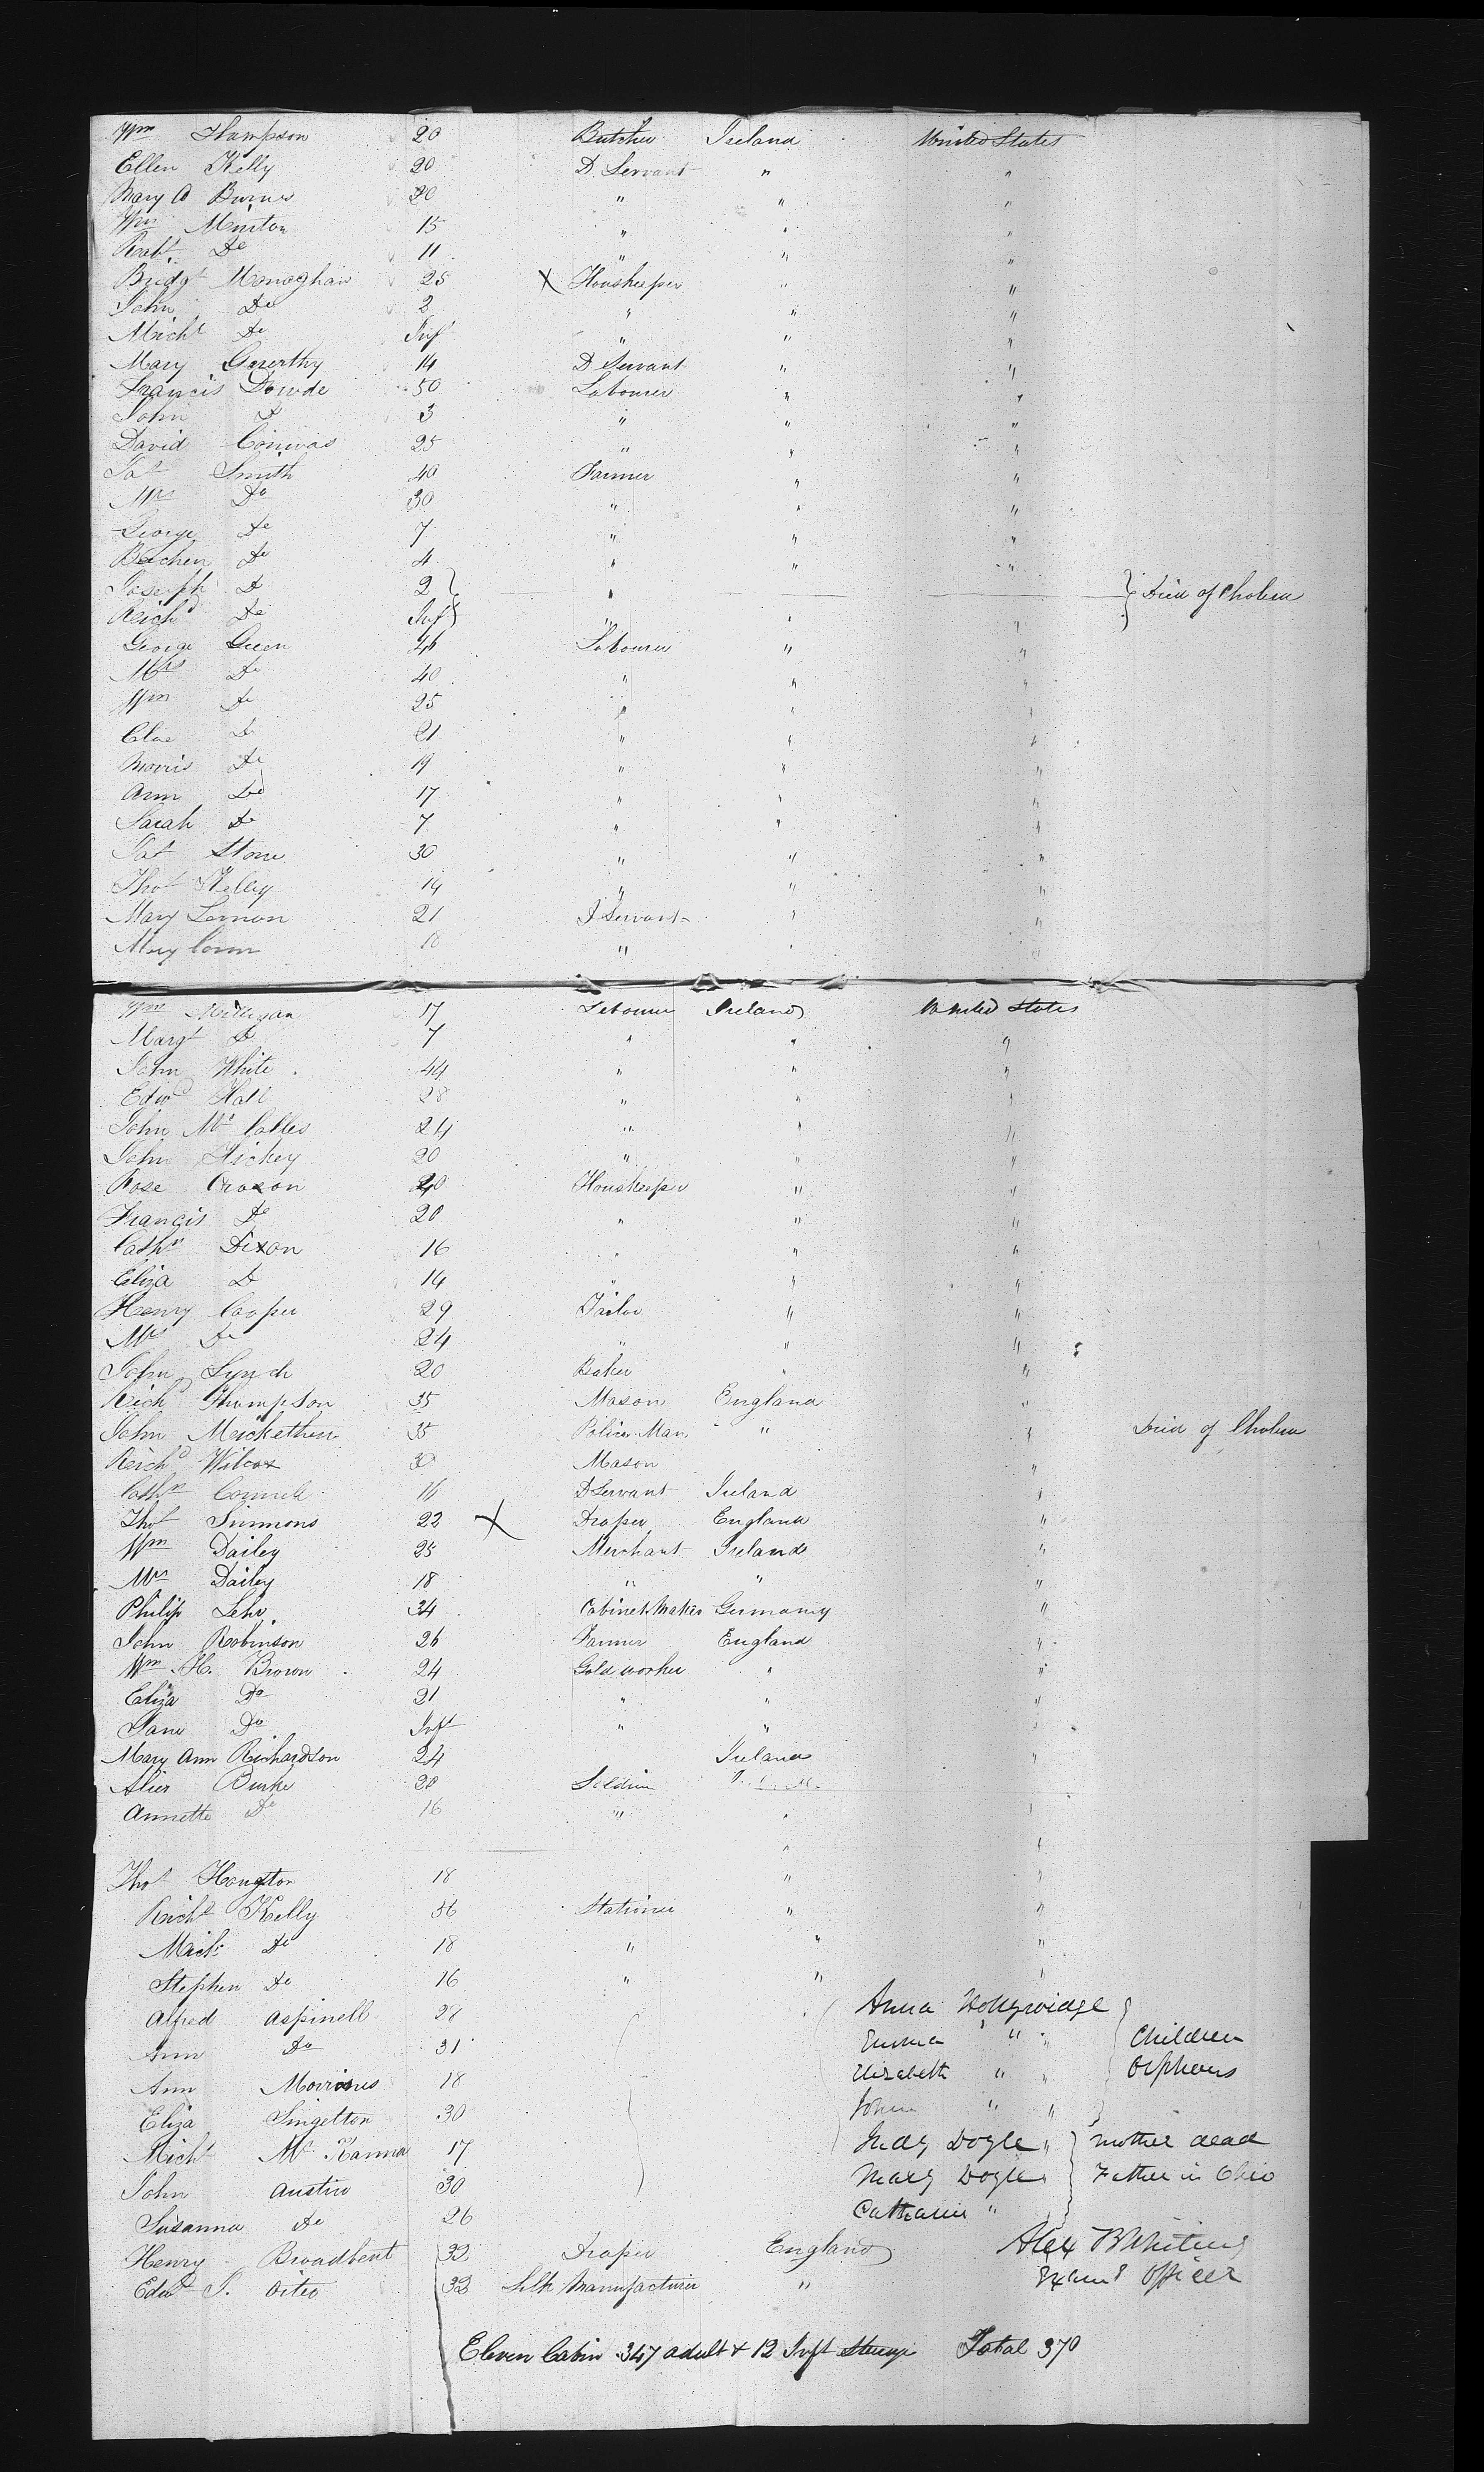 Wm Thompson 20 Butcher Ireland United States
Ellen Kelly 20 D. Servant " "
Mary A Burns 20 " " "
Wm Minton 15 " " "
Robt Do 11 " " "
Bridgt Monaghan 25 X Houskeeper " "
John Do 2 " " "
Michl Do Inft " " "
Mary 14 D Servant " "
Francis Dowde 50 Labourer " "
John Do 3 " " "
David 25 " " "
Pat Smith 40 Farmer " "
Mrs Do 30 " " "
George Do 7 " " "
Do 4 " " "
Joseph Do 2 } " } Died of Cholera
Richd Do Inft } " " "
George Green 46 Labourer " "
Mrs Do 40 " " "
Wm Do 25 " " "
Do 21 " " "
Morris Do 19 " " "
Ann Do 17 " " "
Sarah Do 7 " " "
Pat Stone 30 " " "
Thos Kelley 14 " " "
Mary Lemon 21 D Servant " "
Mary Conn 18 " " "
Wm 17 Labourer Ireland United States
Margt Do 7 " " "
John White 44 " " "
Edwd Hall 28 " " "
John 24 " " "
John Hickey 20 " " "
Rose 40 Houskeeper " "
Francis Do 20 " " "
Cathn Dixon 16 " " "
Eliza Do 14 " " "
Henry Cooper 29 Tailor " "
Mrs Do 24 " " "
John Lynch 20 Baker " "
Richd Thompson 35 Mason England "
John 35 Police Man " " Died of Cholera
Richd Wilcox 30 Mason "
Cathn 16 D Servant Ireland "
Thos Simmons 22 X Draper England "
Wm Dailey 25 Merchant Ireland "
Mrs Dailey 18 " " "
Philip Lehr 34 Cabinet Maker Germany "
John Robinson 26 Farmer England "
Wm H. Brown 24 Gold worker " "
Eliza Do 21 " " "
Jane Do Inft " " "
Mary Ann Richardson 24 Ireland "
Burke 20 "
Annette Do 16 " " "
" "
Thos Hougton 18 " "
Richd Kelly 56 Stationer " "
Do 18 " " "
Stephen Do 16 " " "
Alfred Aspinell 28 Anna }
Ann Do 31 Emma " " Children
Ann 18 Elizabeth " " Orphans
Eliza Singelton 30 John " "
Michl 17 Judy Doyle " } mother dead
John Austin 30 Mary Doyle Father in Ohio
Susanna Do 26 Catharine "
Henry Broadbent 32 Draper England Alex B Whiting
Edwd 32 Silk Manufacturer " Officer
Eleven Cabin 347 adult & 12 Inft Steerage Total 370